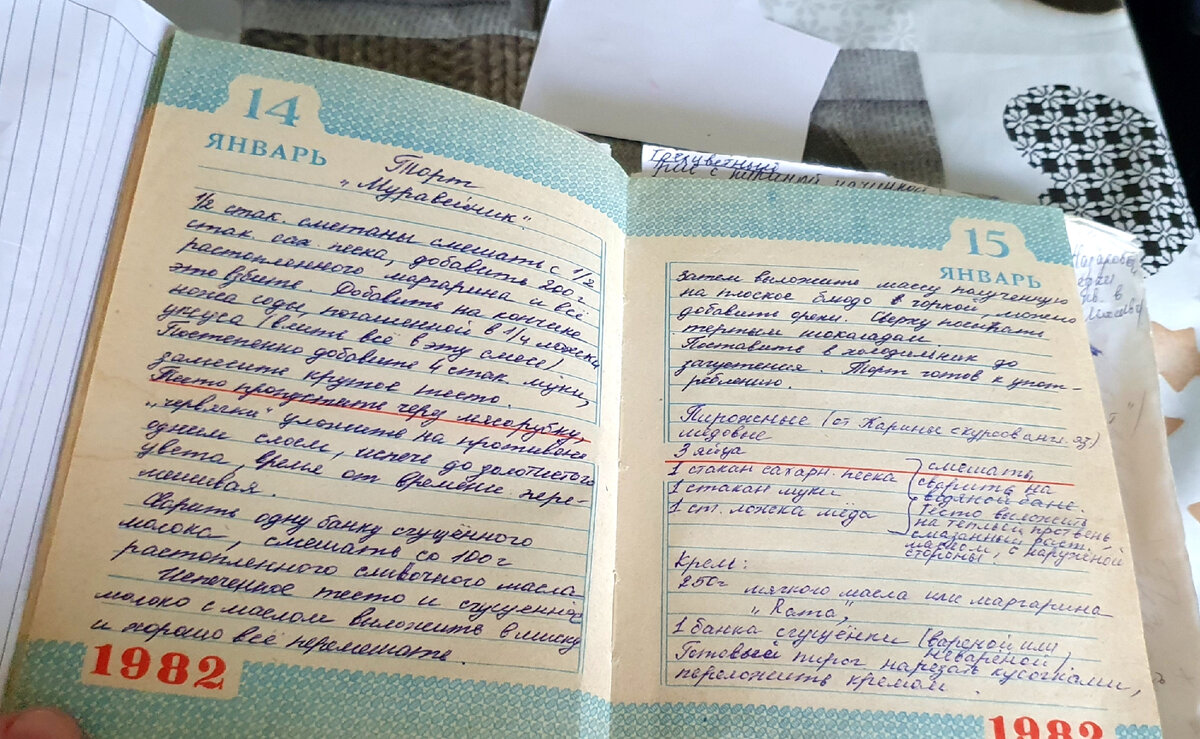 14
ЯНВАРЬ
Торт
„Муравейник".
1/2 стак. сметаны смешать с 1/2
стак. сах. песка, добавить 200 г
растопленного маргарина и всё
это взбить. Добавить на кончике
ножа соды погашенной в 1/4 ложки
уксуса (влить всё в эту смесь).
Постепенно добавить 4 стак. муки,
замесите крутое тесто.
Тесто пропустите через мясорубку,
„червячки" уложите на противень
одним слоем, испечь до золотистого
цвета, время от времени пере-
мешивая.
Сварить одну банку сгущённого
молока, смешать со 100 г
растопленного сливочного масла.
Испеченное тесто и сгущенное
молоко с маслом выложить в миску
и хорошо всё перемешать.
1982
Трёхцветный
рис с
15
ЯНВАРЬ
Затем выложите массу полученную
на плоское блюдо в горкой, можно
добавить орехи. Сверху посыпать
тертым шоколадом.
Поставить в холодильник до
загустения. Торт готов к упот-
реблению.
Пирожные (от Карины с курсов англ. яз.)
медовые
3 яйца
1 стакан сахарн. песка
1 стакан муки
1 ст. ложка мёда
смешать,
сварить на
водяной бане.
Тесто выложить
на теплый противень
смазанный раст.
маслом, с наружной
стороны.
Крем:
250 г мягкого масла или маргарина
„Rama"
1 банка сгущёнки (вареной или
невареной)
Готовый пирог нарезать кусочками,
переложить кремом.
1982